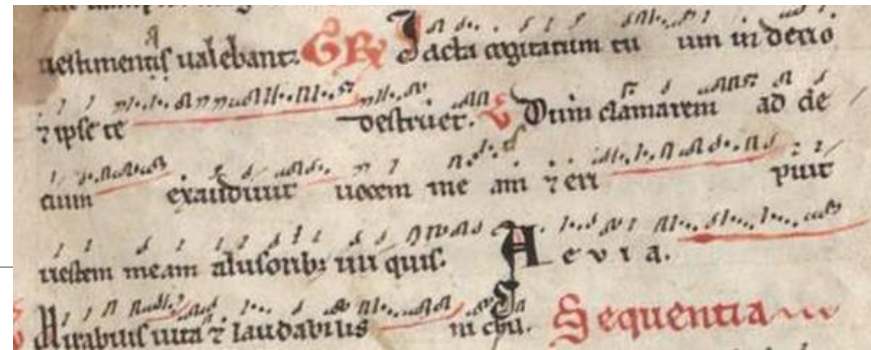 uestimentis ualebant. GR Iacta cogitatum tu um in deo
⁊ ipse te destruet. V Dum clamarem ad de
cum exaudiuit uocem me am ⁊ eri puit
uestem meam alusorib; ini quis. A e v i a.
Mirabilis uita ⁊ laudabilis in Sequentia